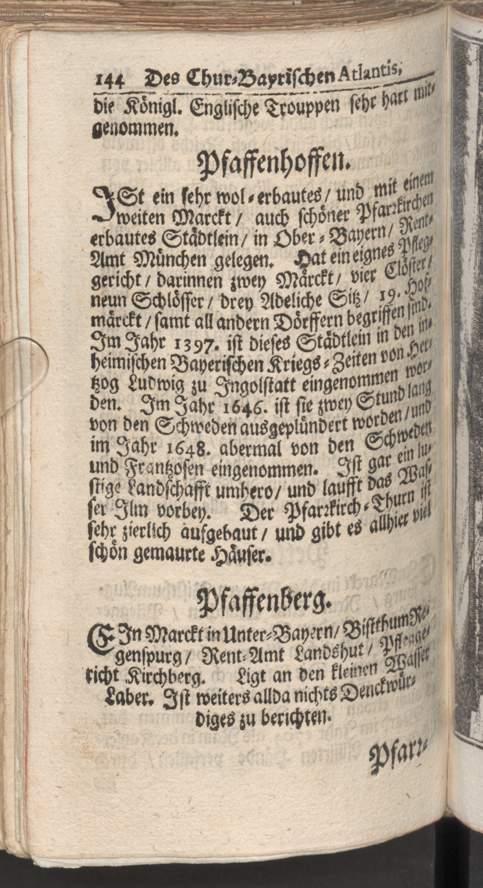 144 Des Chur-Bayrischen Atlantis,
die Königl. Englische Trouppen sehr hart mit-
genommen.
Pfaffenhoffen.
ISt ein sehr wol-erbautes / und mit einem
weiten Marckt / auch schöner Pfarrkirchen
erbautes Städtlein / in Ober-Bayern / Rent-
Amt München gelegen. Hat ein eignes Pfleg-
gericht / darinnen zwey Märckt / vier Clöster /
neun Schlösser / drey Adeliche Sitz / 19. Hof-
märckt / samt all andern Dörffern begriffen sind.
Im Jahr 1397. ist dieses Städtlein in den in-
heimischen Bayerischen Kriegs-Zeiten von Her-
tzog Ludwig zu Ingolstatt eingenommen wor-
den. Im Jahr 1646. ist sie zwey Stund lang
von den Schweden ausgeplündert worden / und
im Jahr 1648. abermal von den Schweden
und Frantzosen eingenommen. Ist gar ein lu-
stige Landschafft umhero / und laufft das Was-
ser Ilm vorbey. Der Pfarrkirch-Thurn ist
sehr zierlich aufgebaut / und gibt es allhier viel
schön gemaurte Häuser.
Pfaffenberg.
EIn Marckt in Unter-Bayern / Bistthum Re-
genspurg / Rent-Amt Landshut / Pfleg-ge-
richt Kirchberg. Ligt an den kleinen Wasser
Laber. Ist weiters allda nichts Denckwür-
diges zu berichten.
Pfarr-